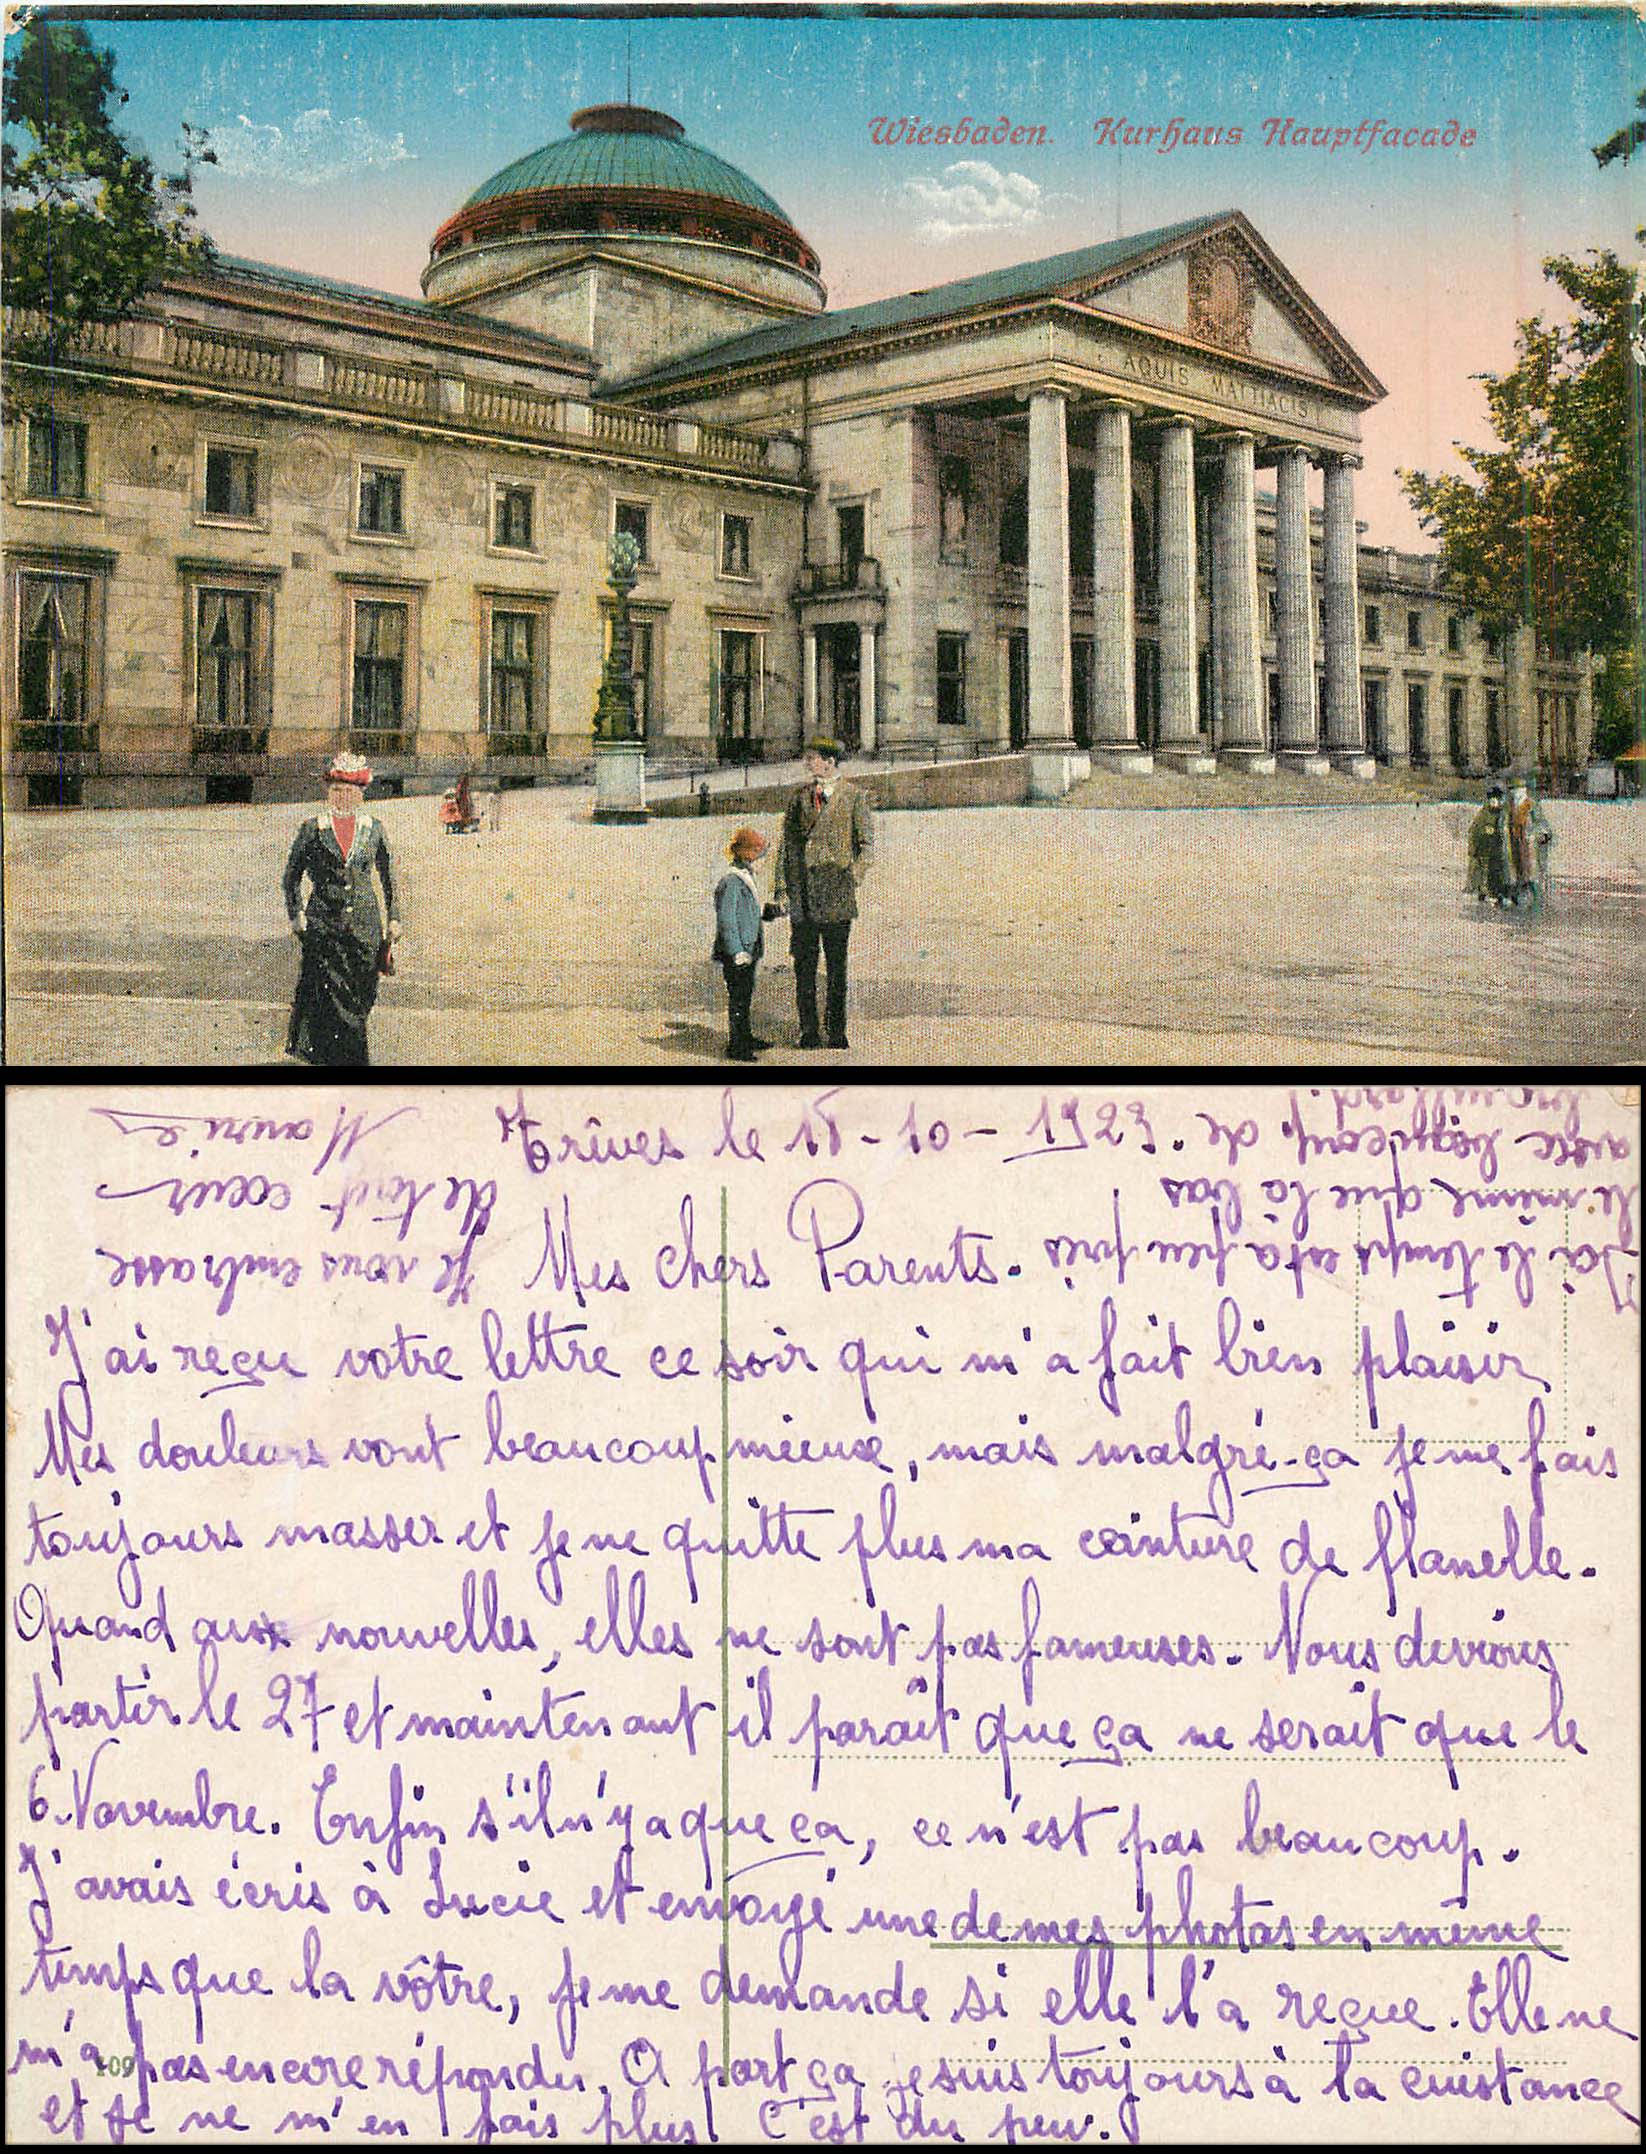 Wiesbaden. Kurhaus Hauptfacade
AQUIS MATTIACIS
Trêves le 18-10-1923.
Mes chers Parents.
J'ai reçu votre lettre ce soir qui m'a fait bien plaisir
Mes douleurs vont beaucoup mieux, mais malgré-ça je me fais
toujours masser et je ne quitte plus ma ceinture de flanelle.
Quand aux nouvelles, elles ne sont pas fameuses. Nous devions
partir le 27 et maintenant il parait que ça ne serait que le
6 Novembre. Enfin s'il n'y a que ça, ce n'est pas beaucoup.
J'avais écris à Lucie et envoyé une de mes photos en même
temps que la vôtre, je me demande si elle l'a reçue. Elle ne
m'a pas encore répondu. A part ça je suis toujours à la cuistance
et je ne m'en fais plus C'est du peu.
109
Ici le temps est à peu près
le même que là bas
avec beaucoup de
brouillard.
Je vous embrasse
de tout coeur
Maurice